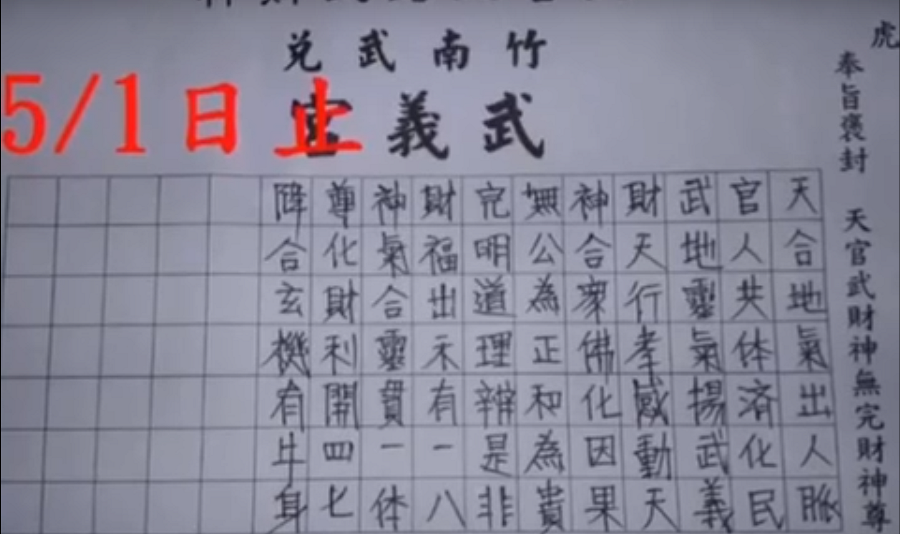 虎
奉旨褒封 天官武財神無完財神尊
竹南武兌
武義宮
5/1日止
天合地氣出人脈
官人共体済化民
武地靈氣揚武義
財天行孝感動天
神合眾佛化因果
無公為正和為貴
完明道理辨是非
財福出禾有一八
神氣合靈貫一体
尊化財利開四七
降合玄機有牛身